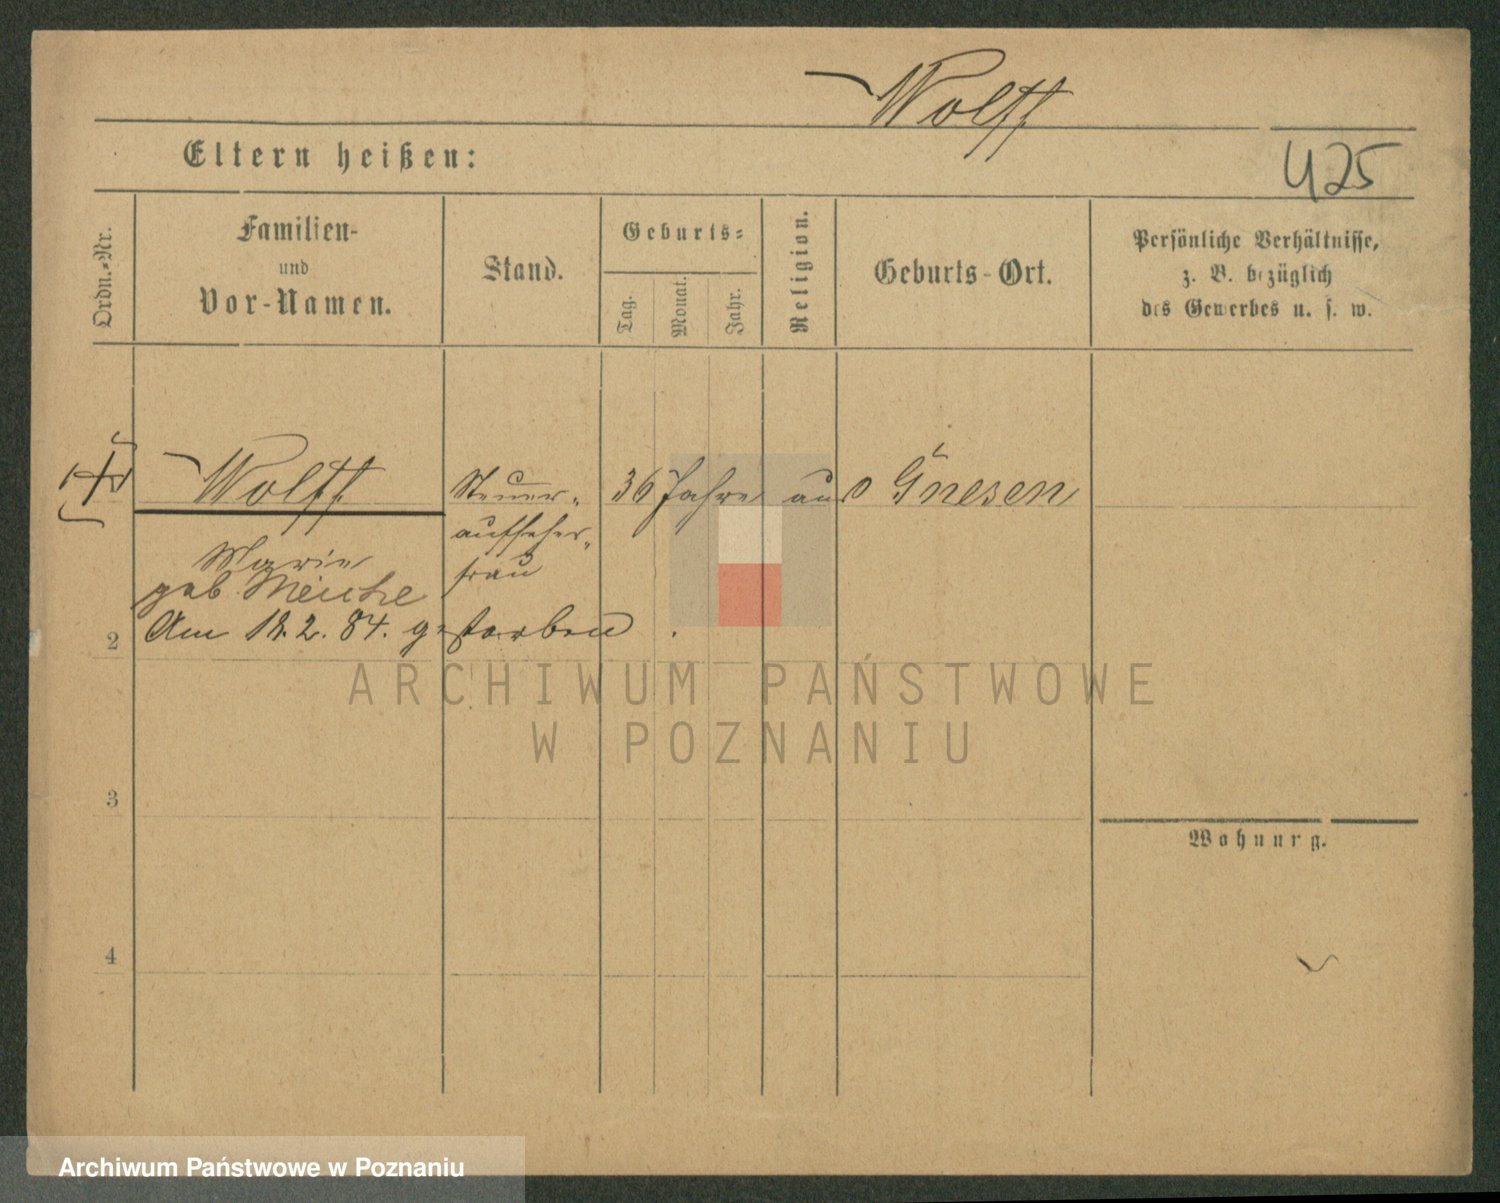 Wolff
Eltern heißen:
425
Ordn.-Nr.
Familien-
und
Vor-Namen.
Stand.
Geburts-
Tag.
Monat.
Jahr.
Religion.
Geburts-Ort.
Persönliche Verhältnisse,
z. B. bezüglich
des Gewerbes u. s. w.
Wolff
Steuer-
36 Jahre aus Gnesen
aufseher-
Marie
frau
geb.
Am 18. 2. 84. gestorben.
2
ARCHIWUM PAŃSTWOWE
W POZNANIU
3
Wohnung.
4
Archiwum Państwowe w Poznaniu